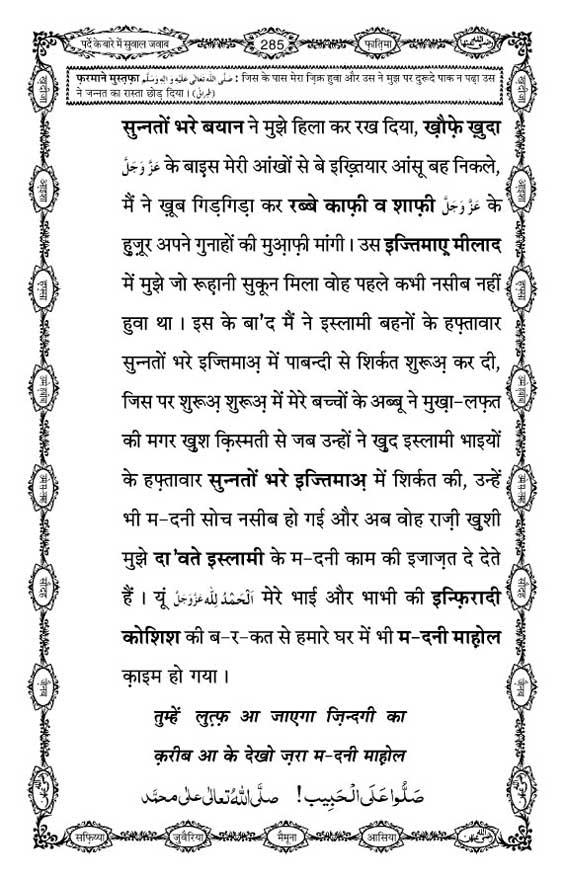 पर्दे के बारे में सुवाल जवाब
285
फ़ातिमा
फ़रमाने मुस्तफ़ा صَلَّى اللّٰهُ تَعَالٰى عَلَيْهِ وَاٰلِهٖ وَسَلَّم : जिस के पास मेरा ज़िक्र हुवा और उस ने मुझ पर दुरूदे पाक न पढ़ा उस
ने जन्नत का रास्ता छोड़ दिया। (طبرانی)
सुन्नतों भरे बयान ने मुझे हिला कर रख दिया, ख़ौफ़े ख़ुदा
عَزَّ وَجَلَّ के बाइस मेरी आंखों से बे इख़्तियार आंसू बह निकले,
मैं ने ख़ूब गिड़गिड़ा कर रब्बे काफ़ी व शाफ़ी عَزَّ وَجَلَّ के
हुज़ूर अपने गुनाहों की मुआ़फ़ी मांगी। उस इज्तिमाए़ मीलाद
में मुझे जो रूह़ानी सुकून मिला वोह पहले कभी नसीब नहीं
हुवा था। इस के बा'द मैं ने इस्लामी बहनों के हफ़्तावार
सुन्नतों भरे इज्तिमाअ़ में पाबन्दी से शिर्कत शुरूअ़ कर दी,
जिस पर शुरूअ़ शुरूअ़ में मेरे बच्चों के अब्बू ने मुख़ा-लफ़त
की मगर ख़ुश क़िस्मती से जब उन्हों ने ख़ुद इस्लामी भाइयों
के हफ़्तावार सुन्नतों भरे इज्तिमाअ़ में शिर्कत की, उन्हें
भी म-दनी सोच नसीब हो गई और अब वोह राज़ी ख़ुशी
मुझे दा'वते इस्लामी के म-दनी काम की इजाज़त दे देते
हैं। यूं اَلْحَمْدُ لِلّٰه عَزَّوَجَلَّ मेरे भाई और भाभी की इन्फ़िरादी
कोशिश की ब-र-कत से हमारे घर में भी म-दनी माह़ोल
क़ाइम हो गया।
तुम्हें लुत्फ़ आ जाएगा ज़िन्दगी का
क़रीब आ के देखो ज़रा म-दनी माह़ोल
صَلُّوا عَلَى الْحَبِيب! صلَّى اللهُ تعالىٰ علىٰ محمَّد
सफ़िय्या
जुवैरिया
मैमूना
आसिया